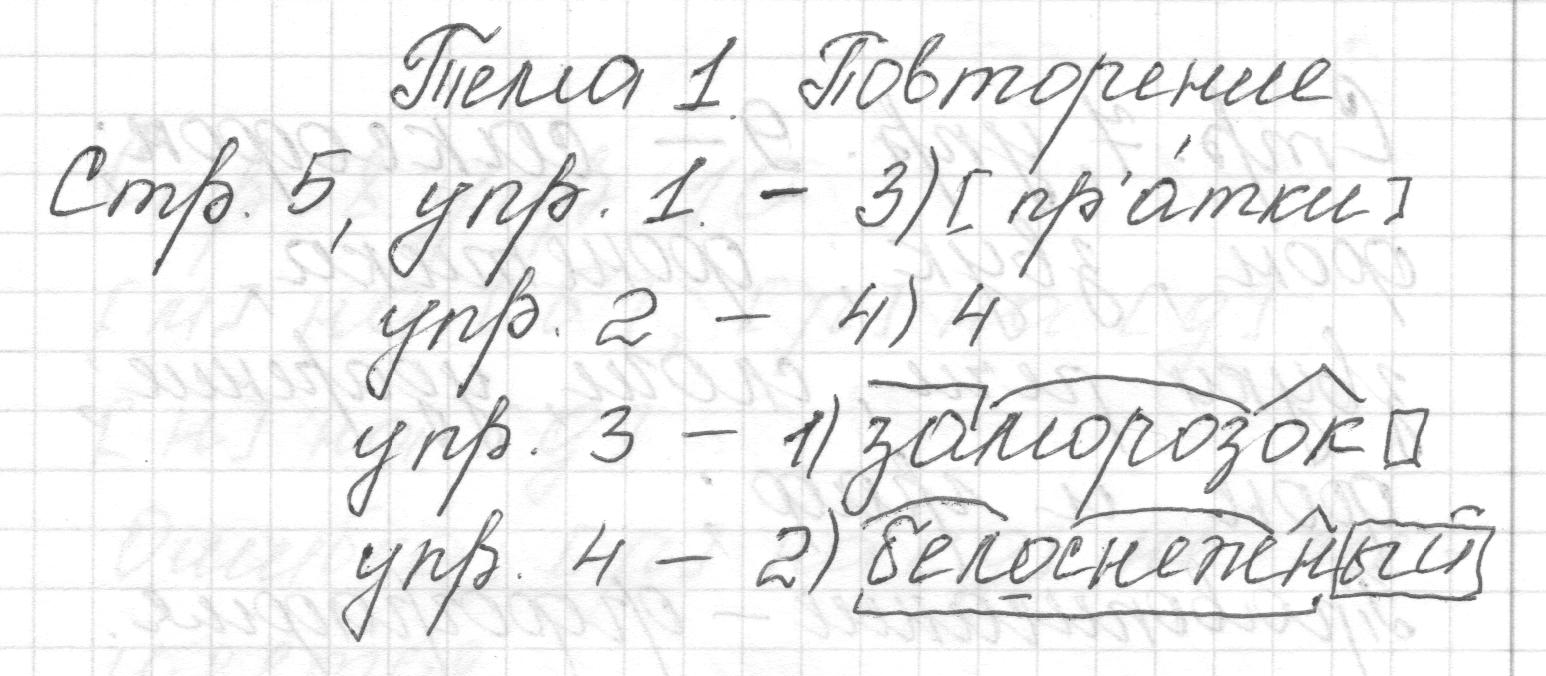 Тема 1. Повторение
Стр. 5, упр. 1. - 3) [пр'áтки]
упр. 2 - 4) 4
упр. 3 - 1) заморозок
упр. 4 - 2) белоснежный